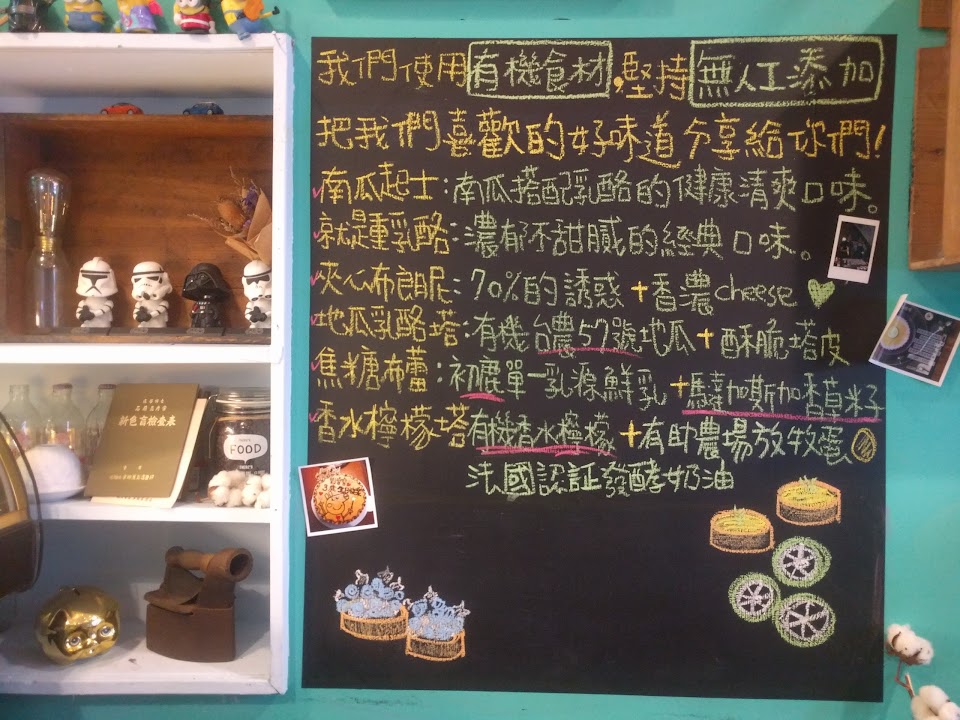 我們使用有機食材,堅持無人工添加
把我們喜歡的好味道分享給你們!
南瓜起士:南瓜搭配乳酪的健康清爽口味。
就是重乳酪:濃郁不甜膩的經典口味。
夾心布朗尼:70%的誘惑+香濃cheese
地瓜乳酪塔:有機台農57號地瓜+酥脆塔皮
焦糖布蕾:初鹿單一乳源鮮乳+馬達加斯加香草籽
香水檸檬塔有機香水檸檬+有助農場放牧蛋
法國認証發酵奶油
新色盲檢查表
FOOD